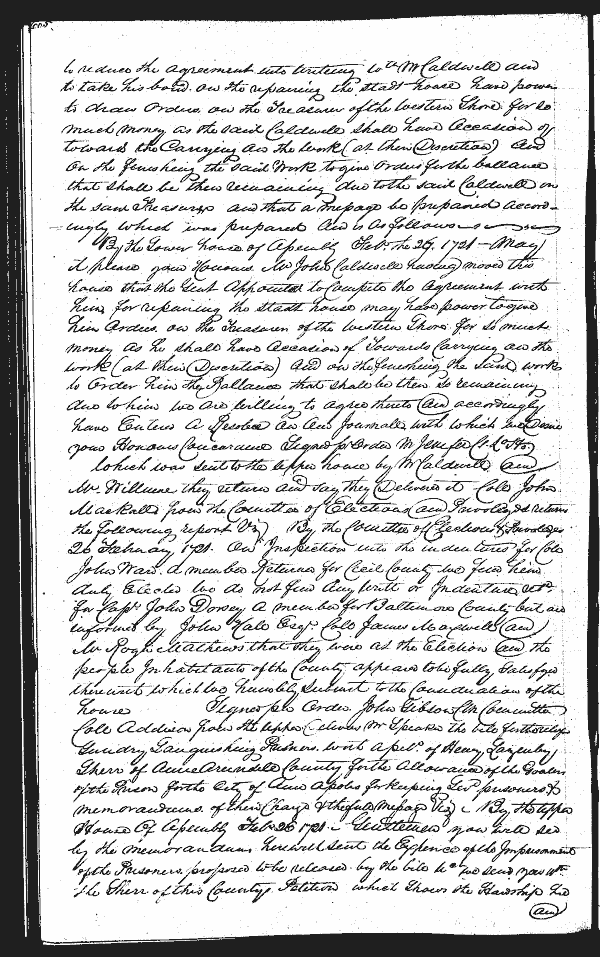 to reduce the agreement into writing wth Mr Caldwell and
to take his bond. on the repairing the stadt house have power
to draw orders on the Treasurer of the Western Shore for so
much money as the said Caldwell shall have Occasion of
towards the Carrying on the work (at their Discretion) And
On the finishing the said Work to give orders for the ballance
that shall be then remaining due to the said Caldwell on
the same Treasurer and that a Message be prepared accord-
ingly which was prepared And is as follows
By the Lower house of Assembly Feb. the 26, 1721 May
it please your Honours Mr John Caldwell having moved this
house that the Gent Appointed to Compleat the Agreement with
him for repairing the stadt house may have power to give
him Orders on the Treasurer of the Western Shore for so much
money as he shall have Occasion of Towards Carrying on the
work (at their Discretion) And on the finishing the same work
to Order him the Ballance that shall be then so remaining
due to him we are willing to agree thereto and accordingly
have Entered A Resolve on our Journale with which we Desire
your Honours Concurrance Signed p Order M Jenifer Cl. Lo. Ho.
Which was sent to the upper house by Mr Caldwell and
Mr. they return and say they Delivered it Coll John
Mackall from the Committee of Elections and Priviledges returns
the following report Viz By the Committee of Elections & Priviledges
26 February 1721. On Inspection into the indentures for Coll
John Ward. A member Returned for Cecil County we find him
duly Elected we do not find Any Writt or Indenture
for Capt John Dorsey A member for Baltimore County but are
informed by John Hall Esqr. Coll James Maxwell and
Mr Roger Mathews that they were at the Election and the
people Inhabitants of the County appeared to be fully Satisfyed
therewith which we humbly submit to the Consideration of the
house Signed p Order John Gibson Cl Committee
Coll Addison from the upper delivers Mr Speaker the bill for the relief
Sundry Languishing Prisoners with a peticn of Henry
Sherr of Anne Arundel County for the Allowance of the
of the Prison for the City of Annapolis for keeping sevl prisoners &
memorandums of their Charge & the full message Viz By the upper
House Of Assembly Feb. 26 1721 Gentlemen you will see
by the memorandums herewith sent the Expence of the Imprisonment
of the Prisoners proposed to be released by the bill we send you with
the Sherr of this Countys Petition which shows the Hardship he
and